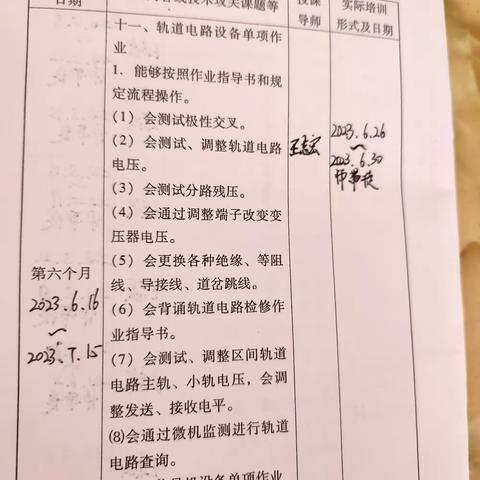 日期
技术攻关课题等
授课
导师
实际培训
形式及日期
十一、轨道电路设备单项作
业
1．能够按照作业指导书和规
定流程操作。
（1）会测试极性交叉。
（2）会测试、调整轨道电路
电压。
（3）会测试分路残压。
（4）会通过调整端子改变变
压器电压。
（5）会更换各种绝缘、等阻
线、导接线、道岔跳线。
（6）会背诵轨道电路检修作
业指导书。
（7）会测试、调整区间轨道
电路主轨、小轨电压，会调
整发送、接收电平。
⑻会通过微机监测进行轨道
电路查询。
机设备单项作业
第六个月
2023.6.16
~
2023.7.15
王志宏
2023.6.26
~
2023.6.30
师带徒